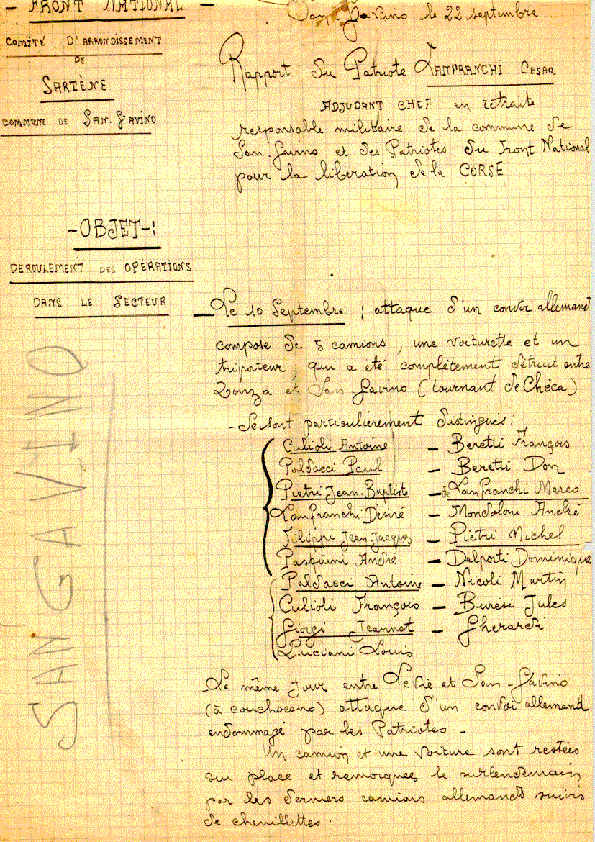 - FRONT NATIONAL -
COMITÉ D'ARRONDISSEMENT
DE
SARTÈNE
COMMUNE DE SAN-GAVINO
San Gavino le 22 septembre
Rapport du Patriote LANFRANCHI CESAR
ADJUDANT CHEF en retraite
responsable militaire de la commune de
San-Gavino et des Patriotes du Front National
pour la libération de la CORSE
- OBJET - :
DEROULEMENT DES OPERATIONS
DANS LE SECTEUR
SAN GAVINO
- Le 10 Septembre ; attaque d'un convoi allemand
composé de 5 camions, une voiturette et un
triporteur, qui a été complètement détruit entre
Zonza et San-Gavino (tournant de Checa)
- Se sont particulièrement distingués :
Culioli Antoine - Beretti François
Poldacci Paul - Beretti Don
Pietri Jean-Baptist - de Lanfranchi Marco
Lanfranchi Desiré - Mondoloni André
Filippi Jean-Jacques - Piétri Michel
Pasquini André - Dalporti Dominique
Poldacci Antoine - Nicoli Martin
Culioli François - Buresi Jules
Giorgi Jeannot - Gherardi
Luciani Louis
Le même jour entre Levie et San-Gavino
attaque d'un convoi allemand
endommagé par les Patriotes -
Un camion et une voiture sont restées
sur place et remorquées le surlendemain
par les derniers camions allemands suivis
de chenillettes.